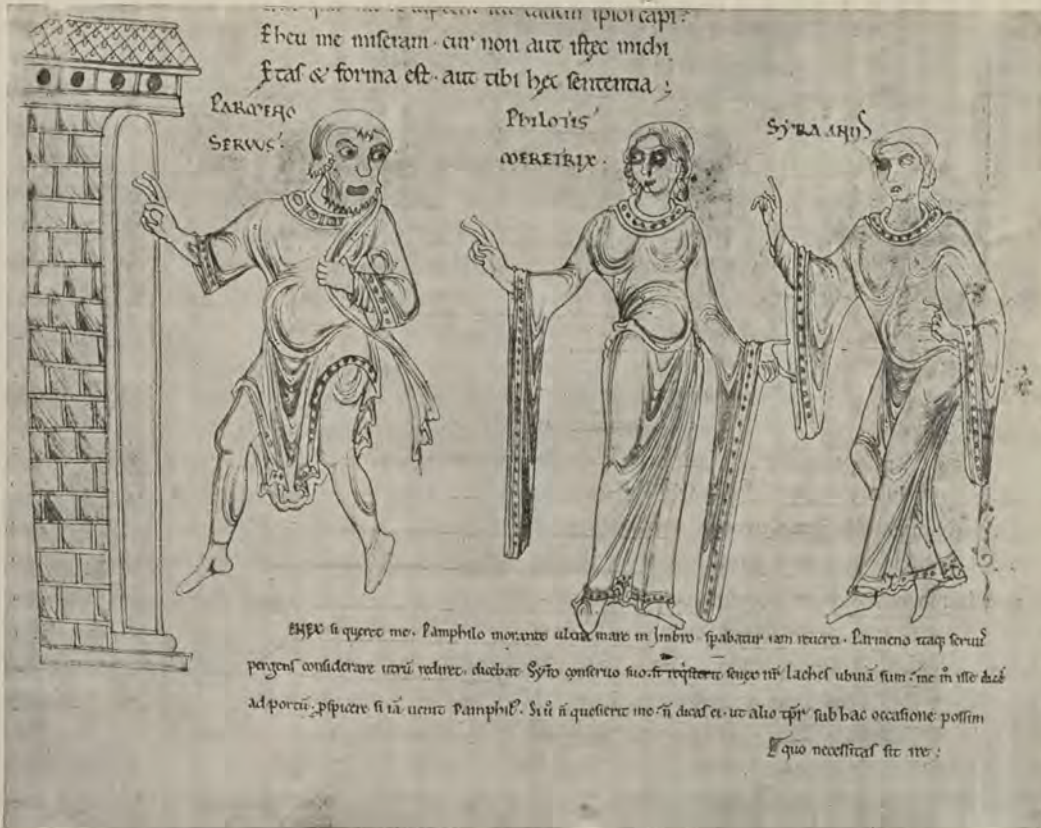 Eheu me miseram · cur non aut istec michi
Etas & forma est · aut tibi hec sententia ;
PARMENO
SERVVS ·
PhILOTIS
MERETRIX ·
SYRA ANUS
SENEX si queret me · Pamphilo morante ultra mare in Imbro · spabatur iam reuerti · Parmeno itaq; seruus
pergens considerare utrū rediret · dicebat Syro conseruo suo · senex nr̄ Laches ubinā sum · me m̊ isse
ad portū · pspicere si iā uenit Pamphil9 · Si u̇ n̄ quesierit me · n̄ dicas ei · ut alio tp̄r sub hac occasione possim
quo necessitas sit ire :